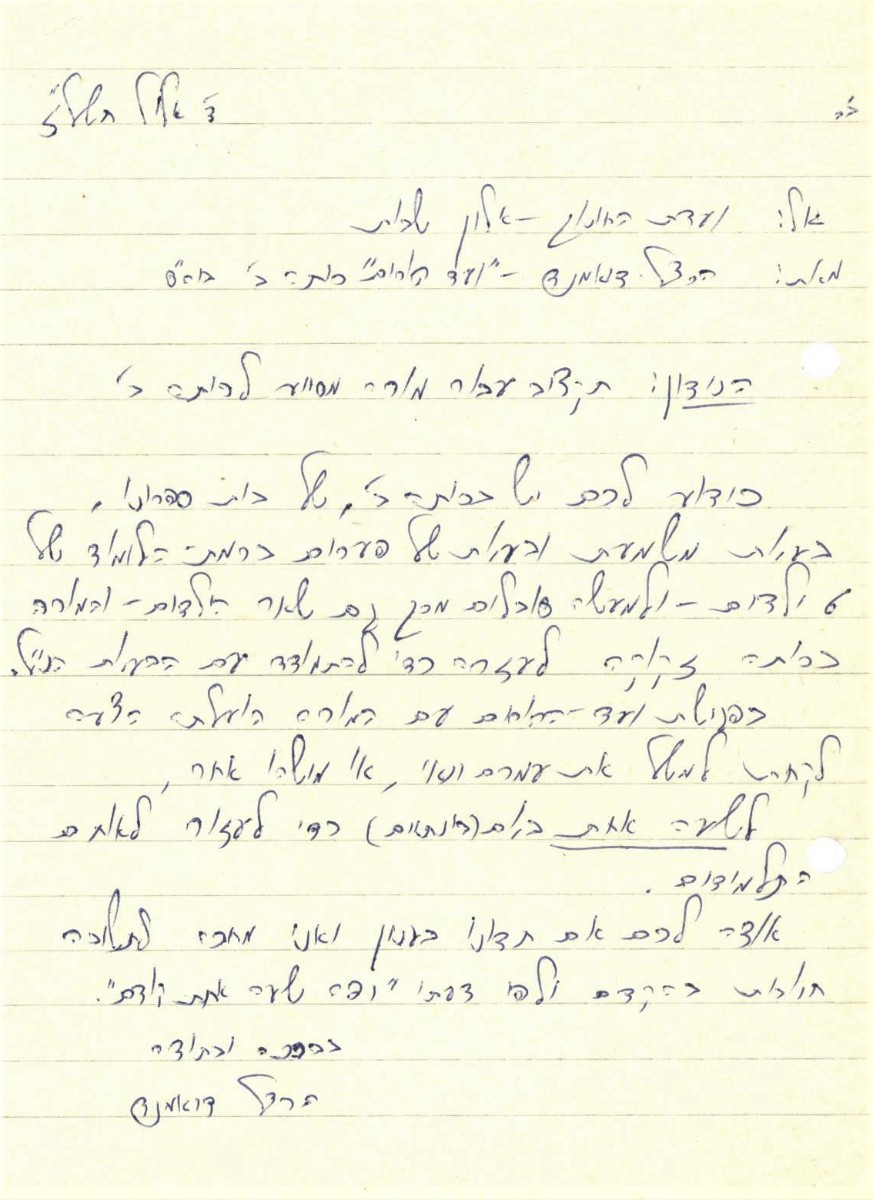 ב"ה
ד' אלול תשל"ז
אל: ועדת החינוך - אלון שבות
מאת: הרצל דיאמנד - "ועד ההורים" כיתה ב' ביה"ס
הנידון: תקציב עבור מורה מסייע לכיתה ב'
כידוע לכם יש בכיתה ב', של בית ספרינו,
בעיות משמעת ובעיות של פערים ברמת-הלימוד של
6 ילדים - ולמעשה סובלים מכך גם שאר הילדים - והמורה
בכיתה זקוקה לעזרה כדי להתמודד עם הבעיות הנ"ל.
בפגישת ועד-ההורים עם המורה הועלתה הצעה
לקחת למשל את עמרם, או מישהו אחר,
לשעה אחת ביום (בינתיים) כדי לעזור לאותם
התלמידים.
אודה לכם אם תדונו בענין ואני מחכה לתשובה
חיובית בהקדם ולפי דעתי "יפה שעה אחת קודם".
בברכה ובתודה
הרצל דיאמנד